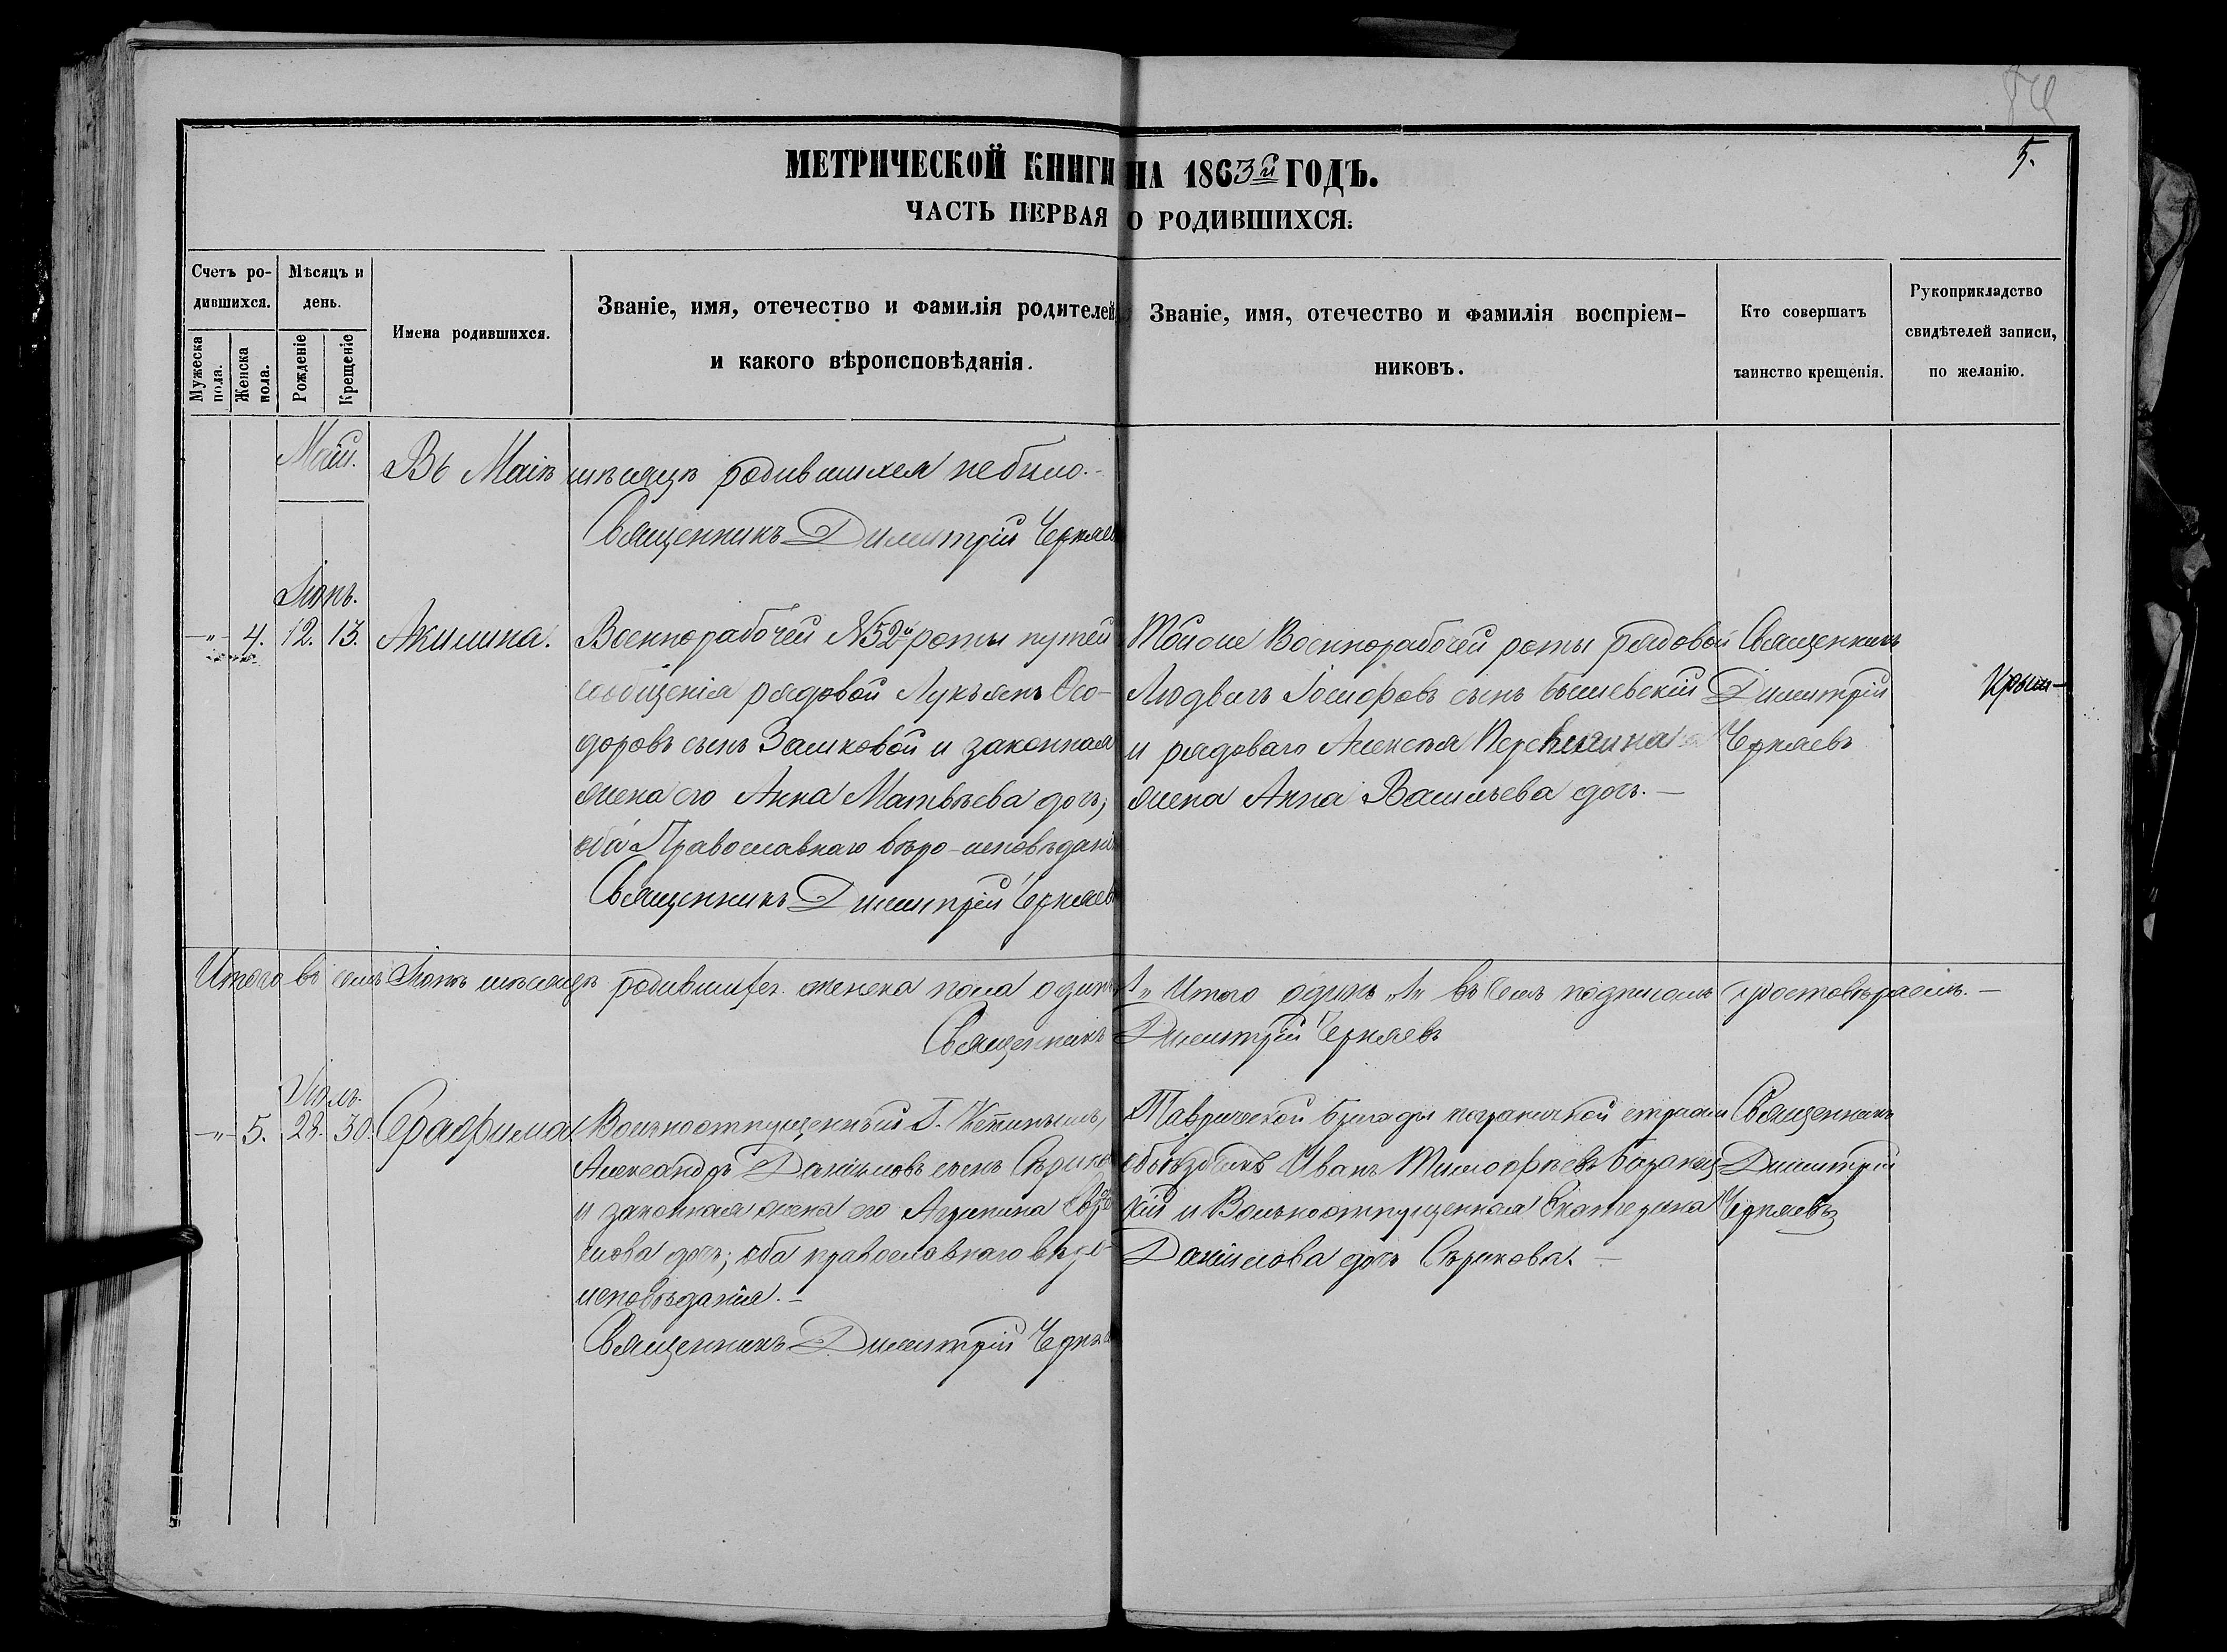 5.
МЕТРИЧЕСКОЙ КНИГИ НА 1863й ГОДЪ.
ЧАСТЬ ПЕРВАЯ О РОДИВШИХСЯ.
Счетъ ро-
дившихся.
Мужеска
пола.
Женска
пола.
Мѣсяцъ и
день.
Рожденіе
Крещеніе
Имена родившихся.
Званіе, имя, отечество и фамилія родителей,
и какого вѣроисповѣданія.
Званіе, имя, отечество и фамилія воспріем-
никовъ.
Кто совершатъ
таинство крещенія.
Рукоприкладство
свидѣтелей записи,
по желанію.
Маій.
Въ Маіѣ мѣсяцѣ родившихся небыло.-
Священникъ Димитрій Черняев
Іюнь.
-"- 4. 12. 13. Акилина.
Военнорабочей №52й роты путей
сообщенія рядовой Лукьянъ Ѳео-
доровъ сынъ Замковой и законная
жена его Анна Матвѣева дочь;
оба Православнаго вѣро-исповѣдані
Священникъ Димитрій Черняев
Тойже Военнорабочей роты рядовой
Людвигъ Іосифовъ сынъ
и рядоваго Алексѣя
жена Анна Васильева дочь.-
Священникъ
Димитрій
Черняевъ
Итого въ семъ Іюнѣ мѣсяцѣ родившихся женска пола одинъ
1" Итого одинъ "1" въ чемъ подписомъ удостовѣряемъ.-
Священникъ Димитрій Черняевъ
Іюль.
-"- 5. 28. 30. Серафима
Вольноотпущенный Г.
Александръ Даніиловъ сынъ
и законная жена его Агрипина
дочь; оба православнаго вѣро-
исповѣданія.-
Священникъ Димитрій Черня
Таврической бригады пограничной стражи
объѣздчикъ Иванъ Тимофѣевъ
и Вольноотпущенная Екатерина
Даніилова дочь Сѣрикова.-
Священникъ
Димитрій
Черняевъ